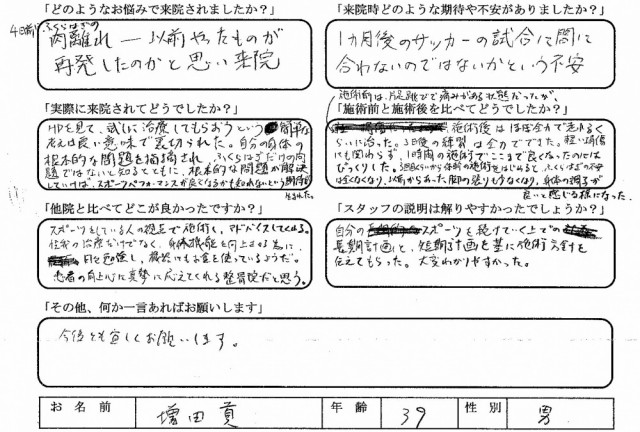 「どのようなお悩みで来院されましたか？」
4日前 ふくらはぎの
肉離れ ― 以前やったものが
再発したのかと思い来院
「来院時どのような期待や不安がありましたか？」
1カ月後のサッカーの試合に間に
合わないのではないかという不安
「実際に来院されてどうでしたか？」
HPを見て、試しに治療してもらおうという簡単な
考えは良い意味で裏切られた。自分の身体の
根本的な問題を指摘され、ふくらはぎだけの問
題ではないと知るとともに、根本的な問題が解決
していけば、スポーツパフォーマンスが良くなるかも知れないという期待が
生まれた。
「施術前と施術後を比べてどうでしたか？」
施術前は、片足跳びで痛みがある状態だったが、
施術後はほぼ全力で走れるく
らいに治った。3日後の練習は全力でできた。軽い損傷
にも関わらず、1時間の施術でここまで良くなったのには
びっくりした。
は全くなくなり、以前からあった肩の張りもなくなり、身体の調子が
良いと感じる様になった。
「他院と比べてどこが良かったですか？」
スポーツをしている人の視点で施術し、アドバイスしてくれる。
住分の治療だけでなく、身体機能を向上させる為に、
日々勉強し、最終にもお金を使っているようだ。
患者の向上心に真摯に応えてくれる整骨院だと思う。
「スタッフの説明は解りやすかったでしょうか？」
自分のスポーツを続けていく上での
長期計画と、短期計画を基に施術方針を
伝えてもらった。大変わかりやすかった。
「その他、何か一言あればお願いします」
今後とも宜しくお願いします。
お名前 増田貢 年齢 39 性別 男